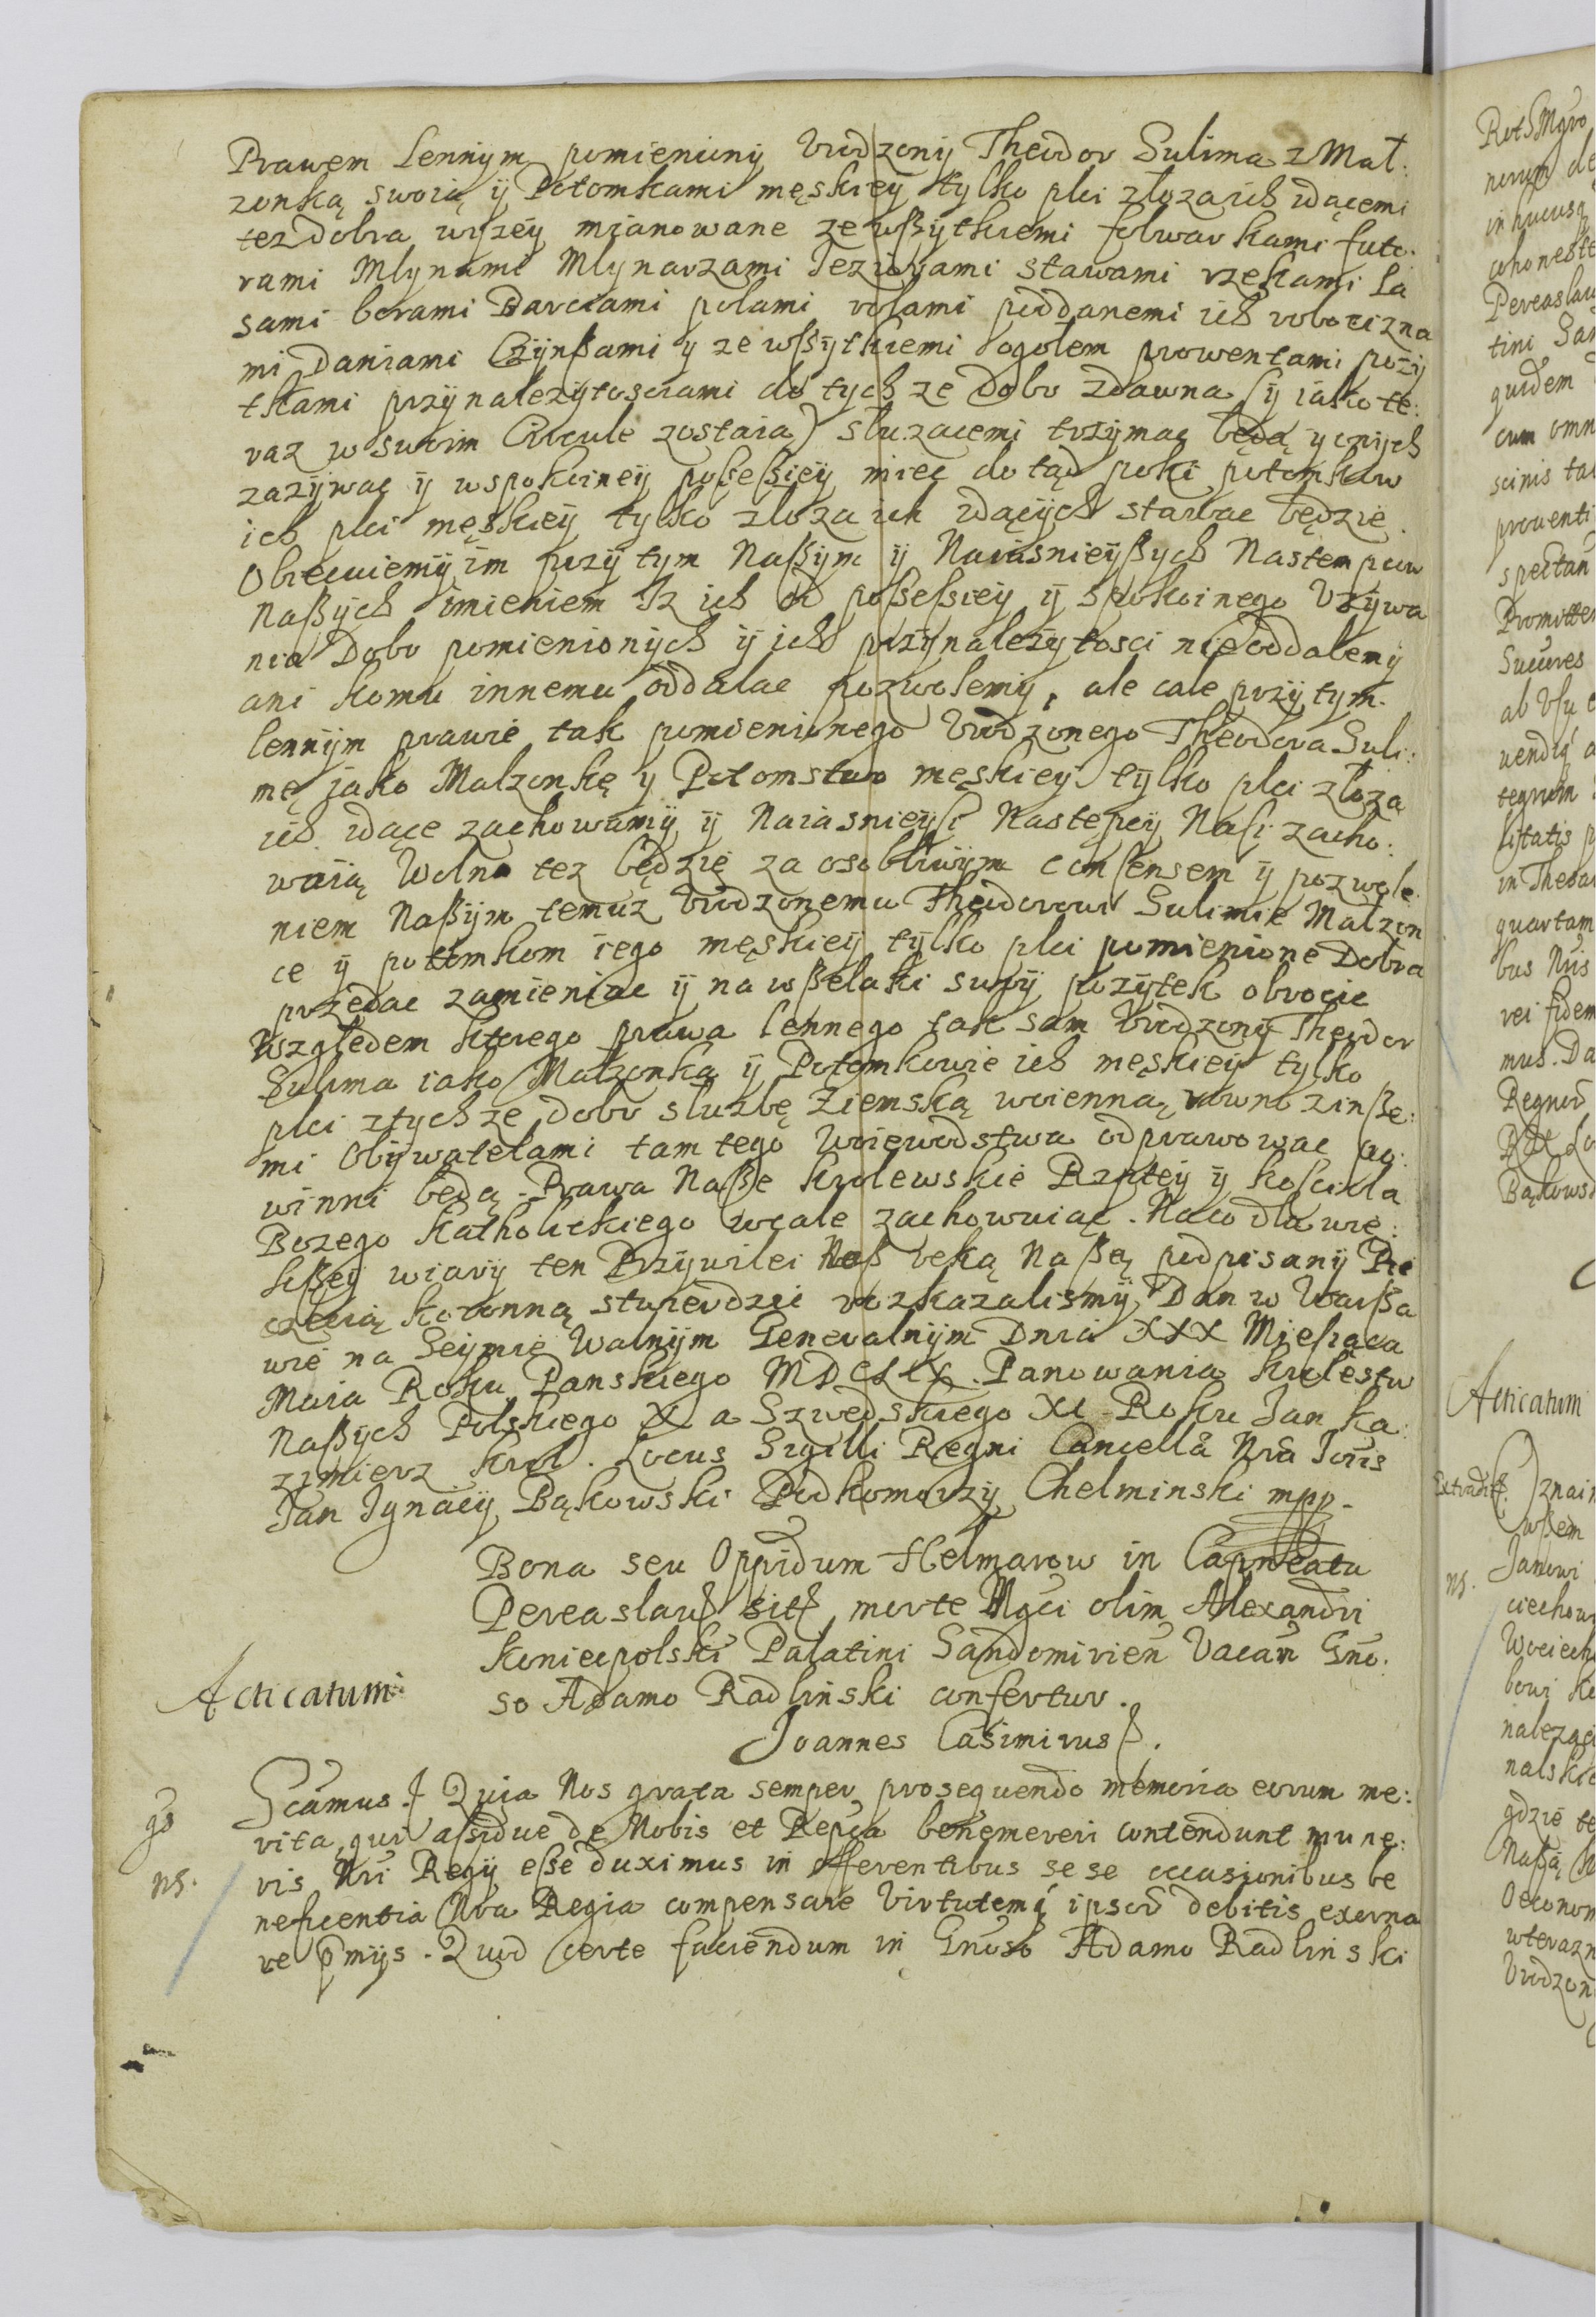 Prawem Lennym pomieniony Vrodzony Theodor Sulima z Mał:
zonką swoią ÿ Potomkami męskiey tylko płci zloza ich idącemi
tez dobra wyzeÿ mianowane ze wßytkiemi folwarkami futo:
rami Młynami Młynarzami Jeziorami stawami rzekami la
sami borami Barciami polami rolami poddanemi ich robocizna
mi Daniami Czÿnßami y ze wßÿtkiemi ogołem prowentami pozÿ
tkami przÿnalezytosciami do tych ze Dobr zdawna (ÿ iako te:
raz w swoim Circule zostaia) słuzacemi trzÿmac będą y onÿch
zazÿwac ÿ wspokoineÿ possessieÿ miec do tąd poki potomkow
ich płci męskieÿ tylko zloza ich idącÿch stawac będzie
Obiecuiemÿ im przÿ tym Naßÿm ÿ Naiasnieÿßych Nastempcow
Naßÿch imieniem Iz ich od possessieÿ ÿ spokoinego Vzÿwa
nia Dobr pomienionÿch ÿ ich przÿnalezÿtosci nieoddalemÿ
ani komu innemu oddalac pozwolemÿ, ale cale przÿ tym
lennÿm prawie tak pomienionego Vrodzonego Theodora Suli:
mę jako Małzonkę y Potomstwo męskieÿ tÿlko płci zloza
ich idące zachowamÿ ÿ Naiasnieÿsi Nastepcÿ Nasi zacho:
waią Wolno tez będzie za osobliwÿm consensem ÿ pozwole
niem Naßÿm temuz Vrodzonemu Theodorowi Sulimie Małzon
ce ÿ potomkom iego męskieÿ tÿlko płci pomienione Dobra
przedac zamieniac ÿ na wßelaki swoÿ pozÿtek obrocic
Względem ktorego prawa lennego tak sam Vrodzonÿ Theodor
Sulima iako Małzonka ÿ Potomkowie ich męskieÿ tylko
płci ztych ze dobr sluzbę Ziemską woienną rowno zinße:
mi Obÿwatelami tam tego Woiewodstwa odprawowac po:
winni będą. Prawa Naße Krolewskie Rzptey ÿ kosciola
Bozego Katholickiego wcale zachowuiąc. Naco dla wie:
kßeÿ wiarÿ ten Przÿwilei Naß ręką Naßą podpisanÿ Pie
częcią koronną stwierdzic rozkazalismÿ Dan w Warßa
wie na Seÿmie Walnÿm Generalnÿm Dnia XXX Miesiąca
Maia Roku Panskiego MDCLIX. Panowania Krolestw
Naßÿch Polskiego X a Szwedskiego XI Roku Jan Ka:
zimierz Krol. Locus Sigilli Regni Cancella Nra Joris
Jan Jgnacÿ Bąkowski Podkomorzÿ Chelminski mpp.
Bona seu Oppidum Helmarow in Capneatu
Pereaslau sit morte Mgci olim Alexandri
Koniecpolski Palatini Sandomirien Vacan Gno:
so Adamo Radlinski confertur.
Joannes Casimirus
Acticatum
Scamus. Quia Nos grata semper prosequendo memoria eorum me:
rita, qui assidue de Nobis et Repca benemereri contendunt mune:
ris Nri Regÿ esse duximus in offerentibus se se occasionibus be
neficentia Nra Regia compensare Virtutemq ipsor debitis exorna
re pmÿs. Quod certe faciendum in Gnoso Adamo Radlinski
ns.
Acticatum